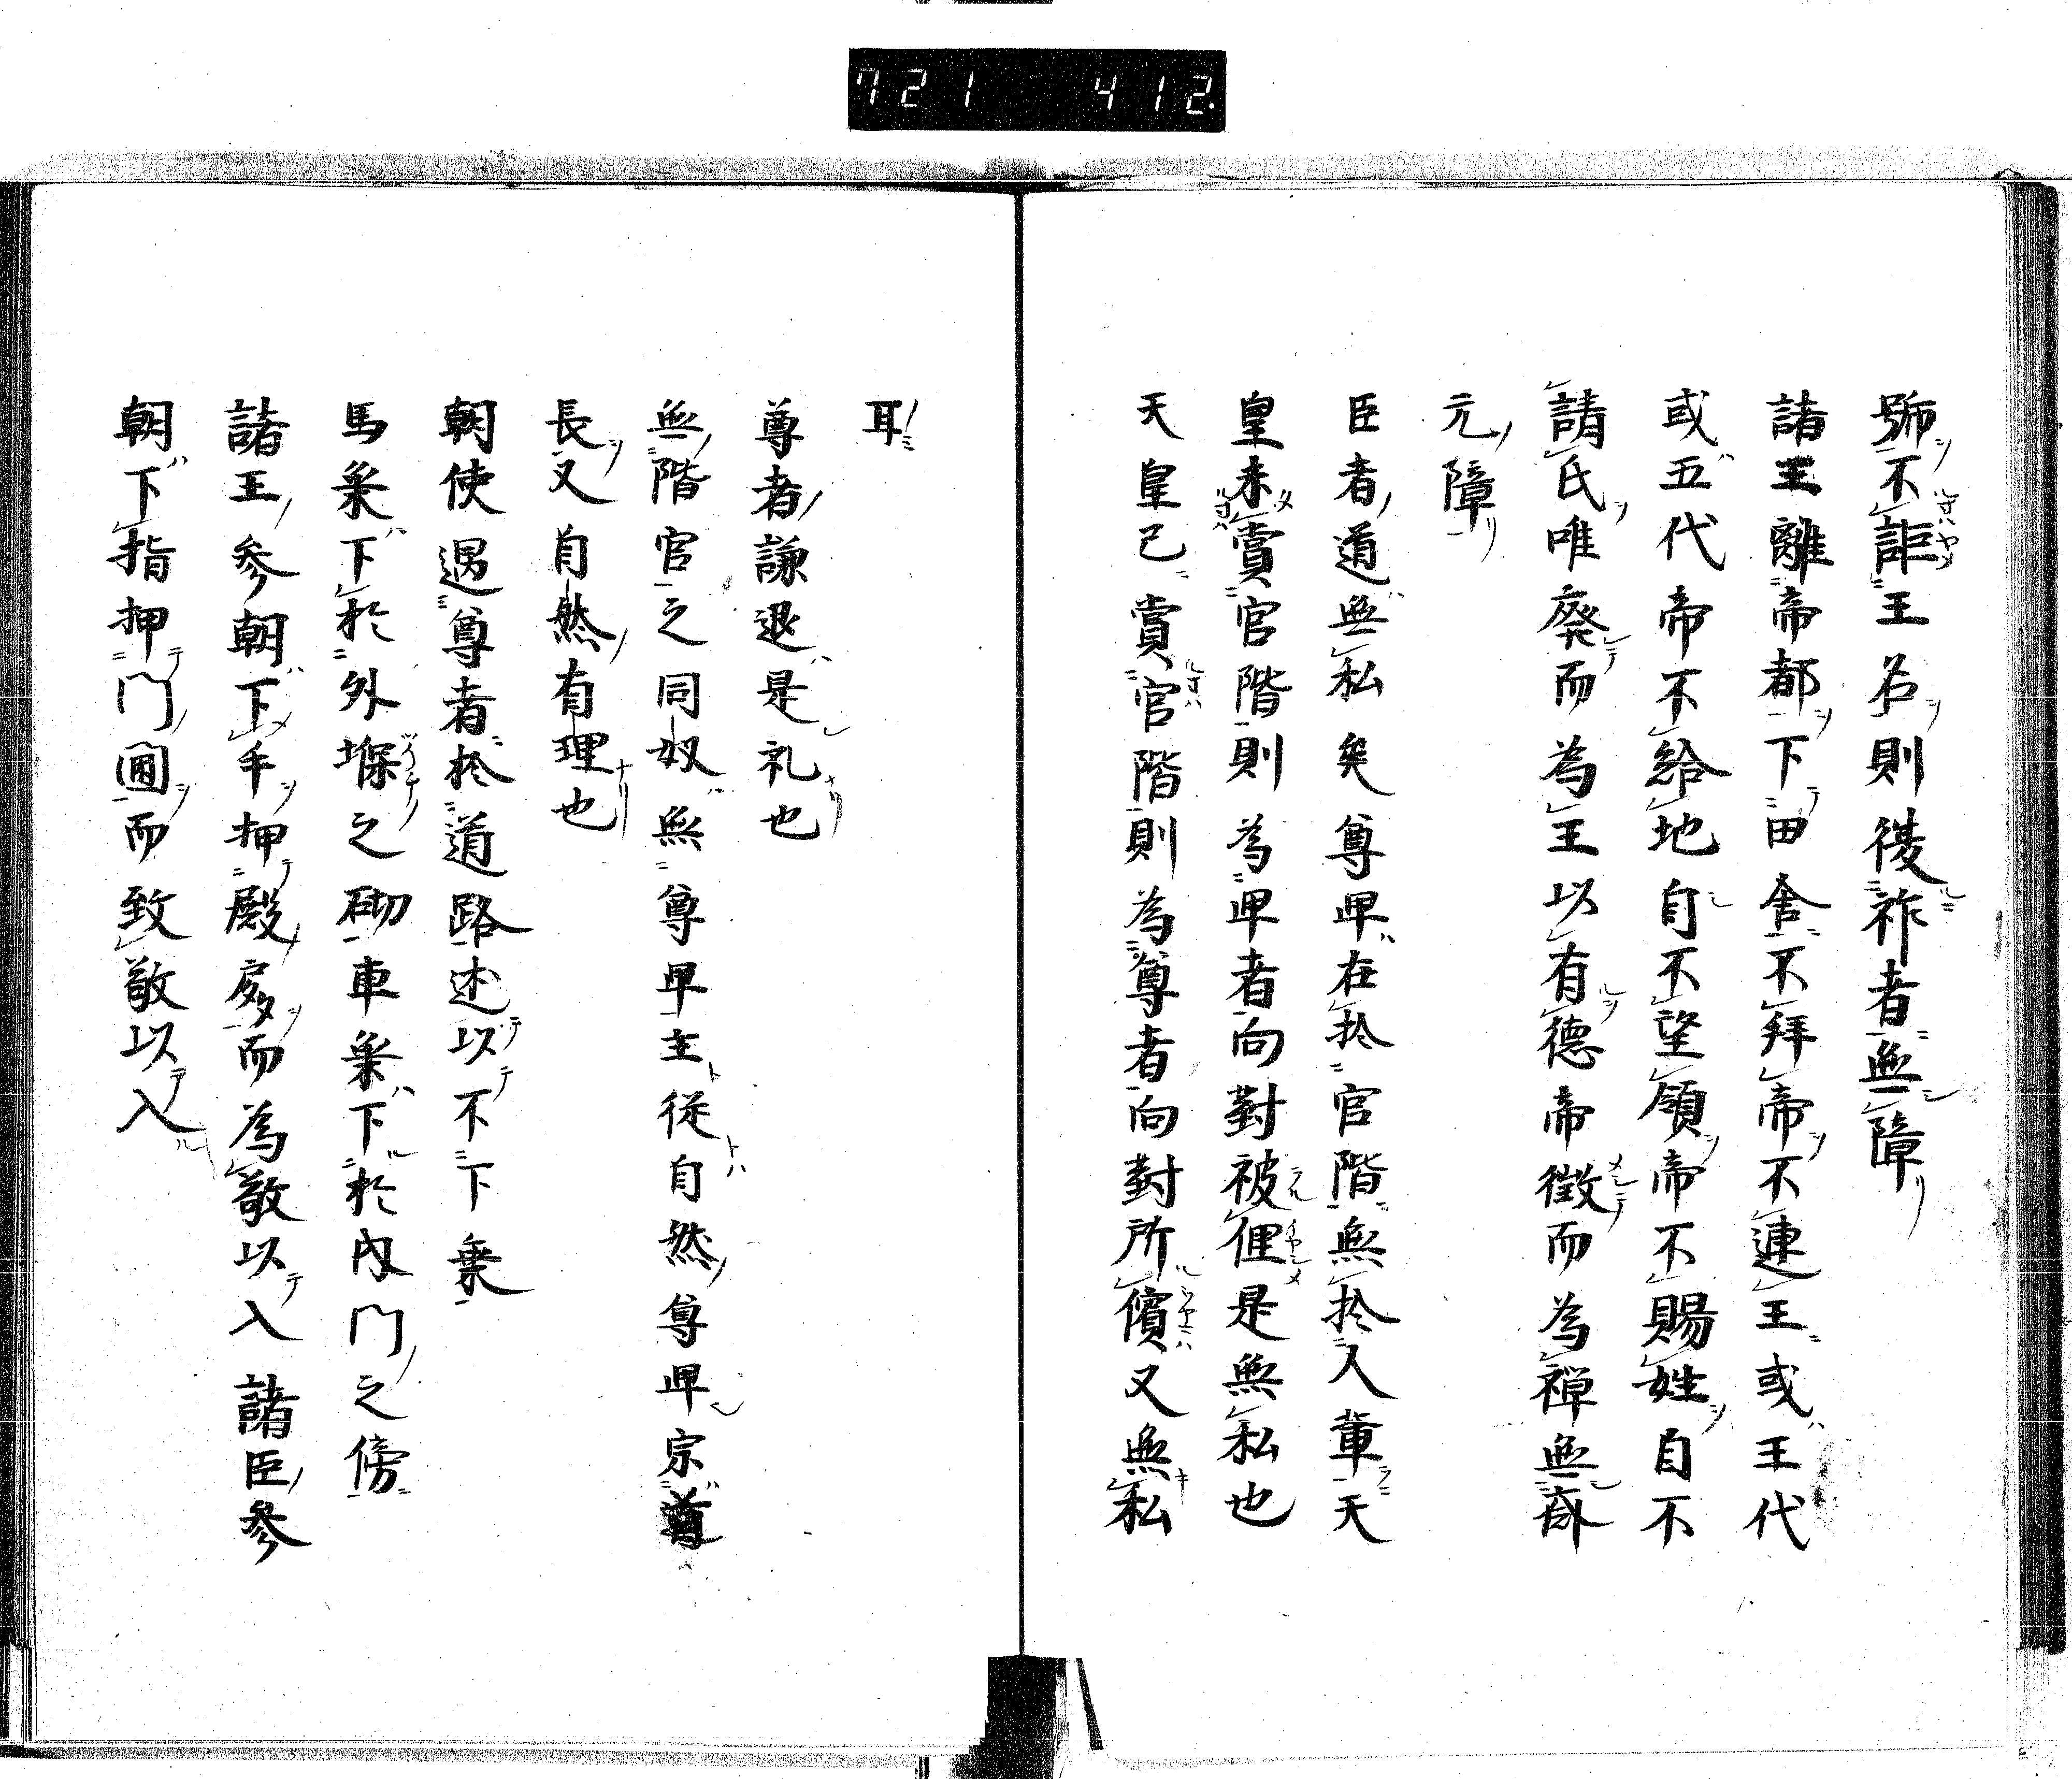 721 412
號不詎王名則後祚者無障
諸王離帝都下田舍不拜帝不連王或王代
或五代帝不給地自不望領帝不賜姓自不
請氏唯廢而為王以有德帝徴而為禅無
元障
臣者道無私矣尊卑在於官階無於人輩天
皇未賞官階則為卑者向對被俚是無私也
天皇已賞官階則為尊者向對所儐又無私
耳
尊者謙退是礼也
無階官之同奴無尊卑主従自然尊卑宗尊
長又自然有理也
朝使遇尊者於道路述以不下乗
馬乗下於外堢之砌車乗下於内門之傍
諸王参朝下手押殿而為敬以入諸臣參
朝下指押門而致敬以入